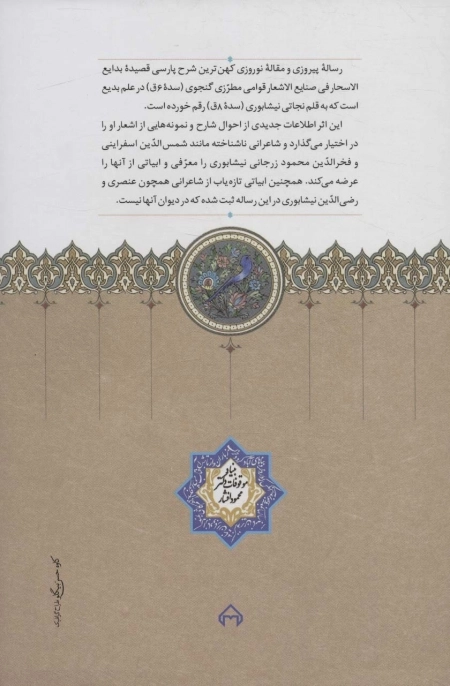 رسالهٔ پیروزی و مقالهٔ نوروزی کهن‌ترین شرح پارسی قصیدهٔ بدایع
الاسحار فی صنایع الاشعار قوامی مطرّزی گنجوی (سدهٔ ۶ق) در علم بدیع
است که به قلم نجاتی نیشابوری (سدهٔ ۸ق) رقم خورده است.
این اثر اطلاعات جدیدی از احوال شارح و نمونه‌هایی از اشعار او را
در اختیار می‌گذارد و شاعرانی ناشناخته مانند شمس‌الدّین اسفراینی و
فخرالدّین محمود زرجانی نیشابوری را معرّفی و ابیاتی از آنها را
عرضه می‌کند. همچنین ابیاتی تازه‌یاب از شاعرانی همچون عنصری و
رضی‌الدّین نیشابوری در این رساله ثبت شده که در دیوان آنها نیست.
بنیاد
موقوفات دکتر
محمود افشار